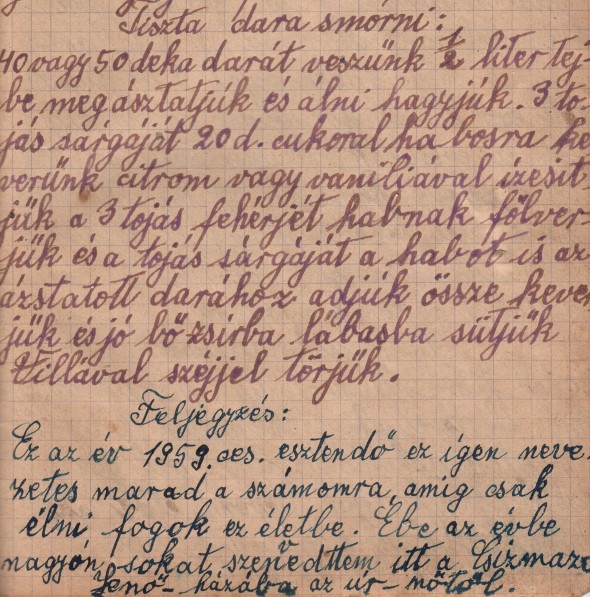 Tiszta dara smórni:
40 vagy 50 deka darát veszünk 1/2 liter tej-
be megásztatjúk és álni hagyjúk. 3 to-
jás sárgáját 20 d. cukoral ha bosra ke
verünk citrom vagy vaniliával izesit-
jük a 3 tojás fehérjét habnak fölver-
jük és a tojás sárgáját a habot is az
ázstatott darához adjúk össze kever
jük és jó bő zsirba lábasba sütjük
Villával széjjel törjük.
Feljegyzés:
Ez az év 1959. ces. esztendő ez igen neve-
zetes marad a számomra, amig csak
élni fogok ez életbe. Ebe az évbe
nagyón sokat szenvedttem itt a Csizmazo
Jenő-házába az ur-nőtől.